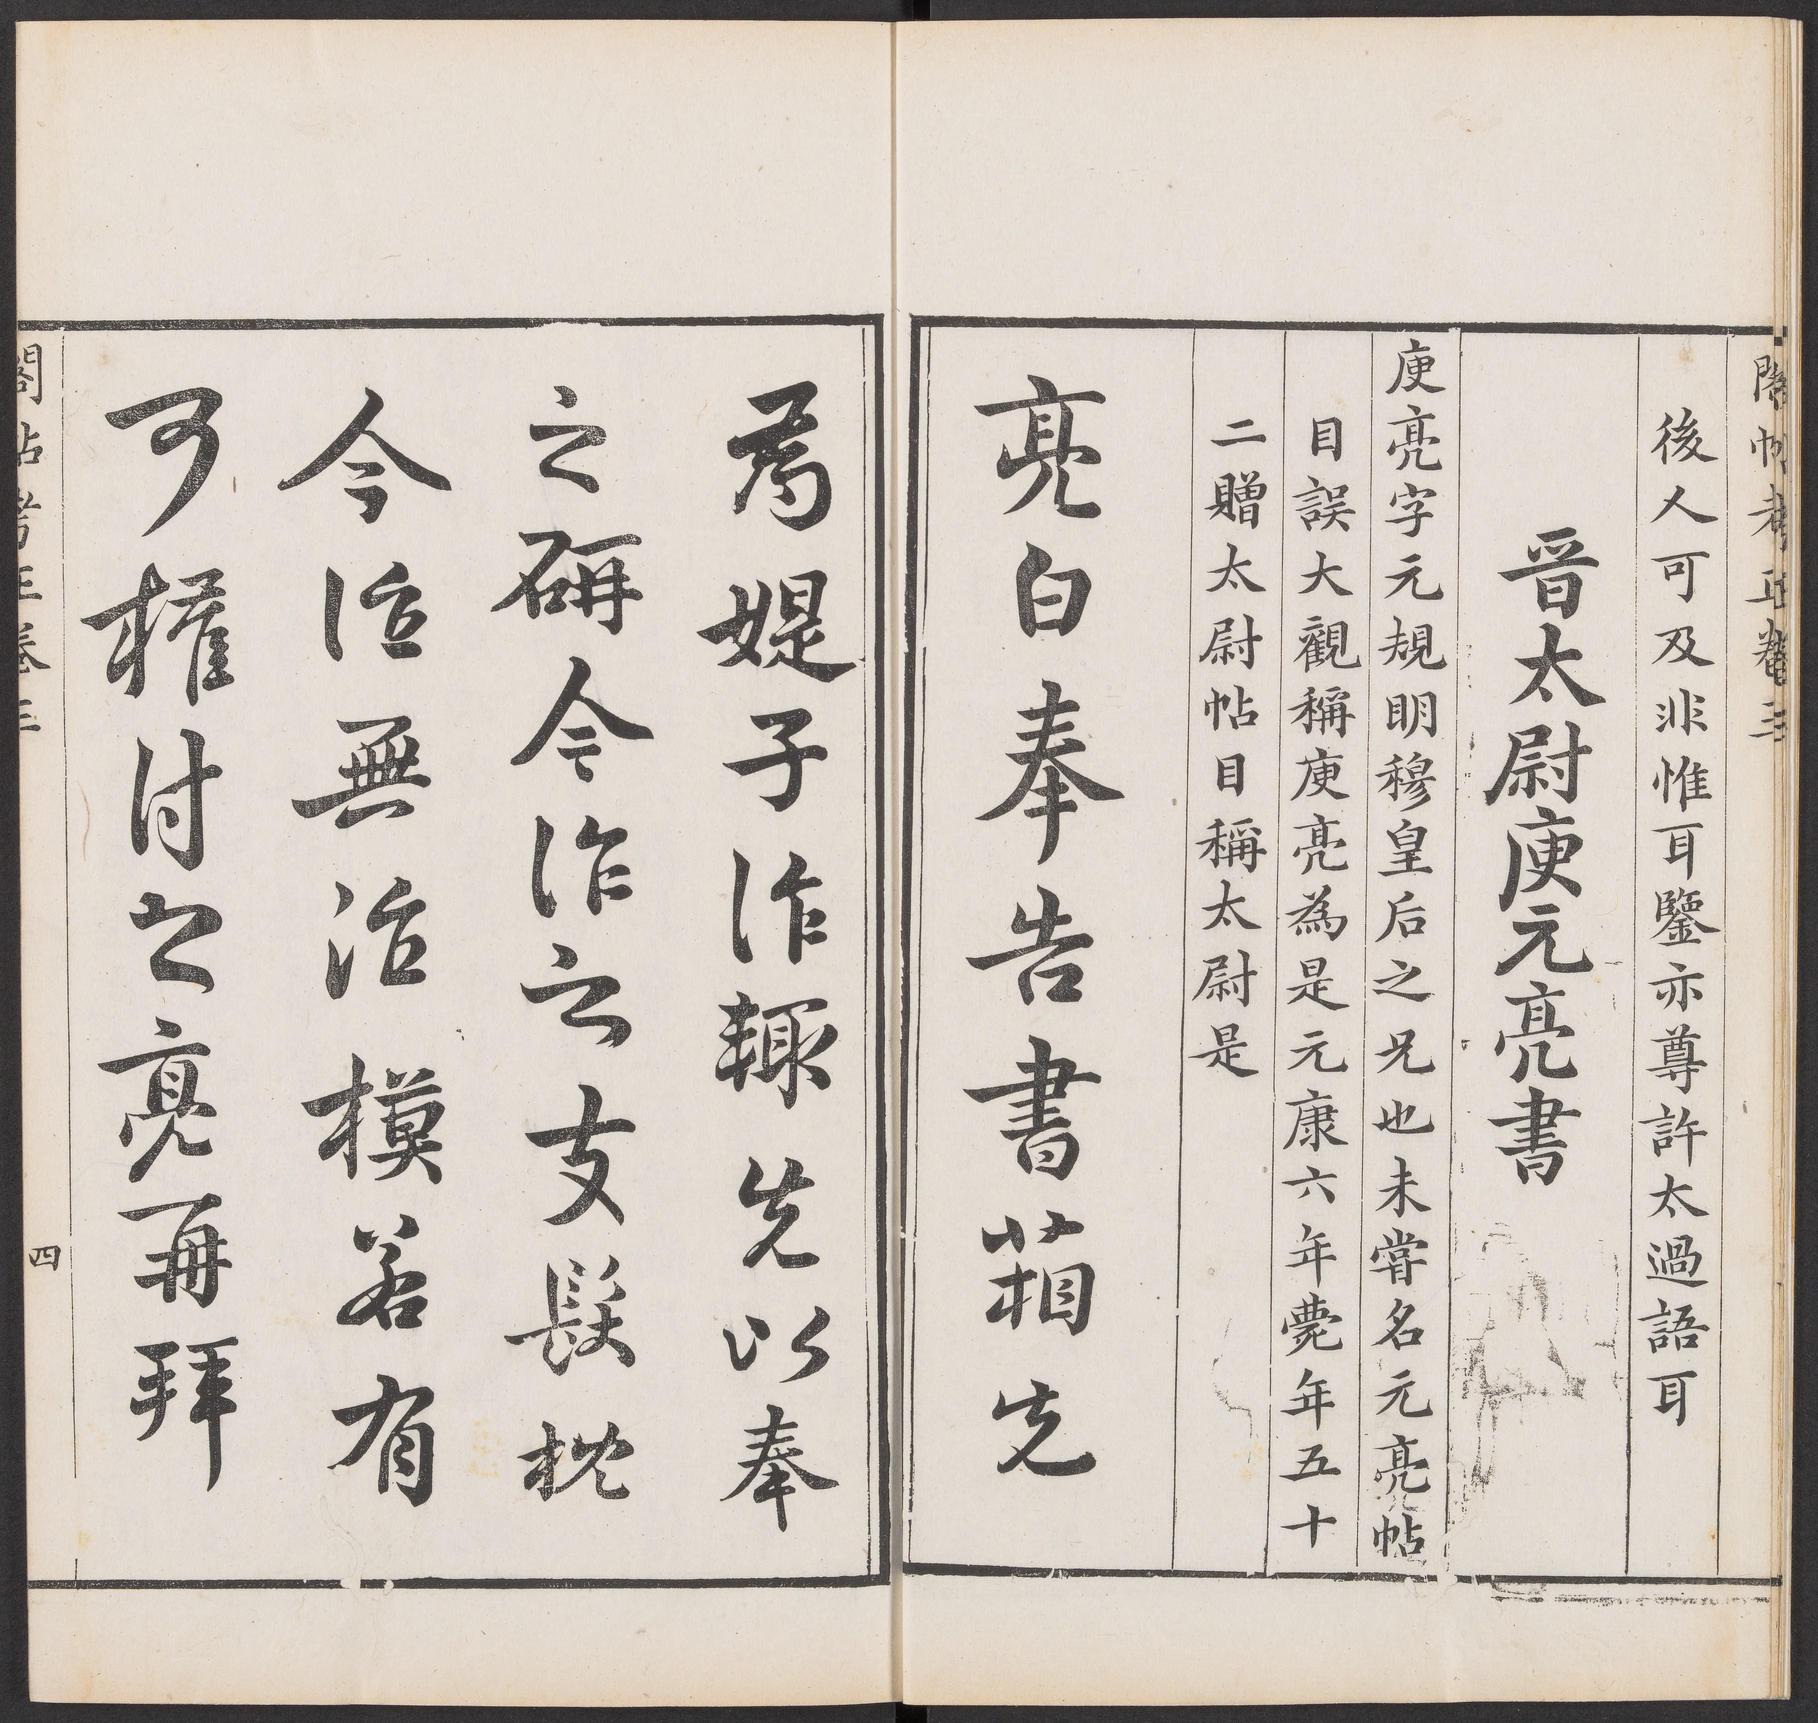 閣帖考正卷三
後人可及非惟耳鑒亦尊許太過語耳
晉太尉庾元亮書
庾亮字元規明穆皇后之兄也未嘗名元亮帖
目誤大觀稱庾亮為是元康六年薨年五十
二贈太尉帖目稱太尉是
亮白奉告書箱先
為媞子作輙先以奉
之研今作之支髮枕
今泣無治模若有
可權付之亮再拜
閣帖考正卷三
四